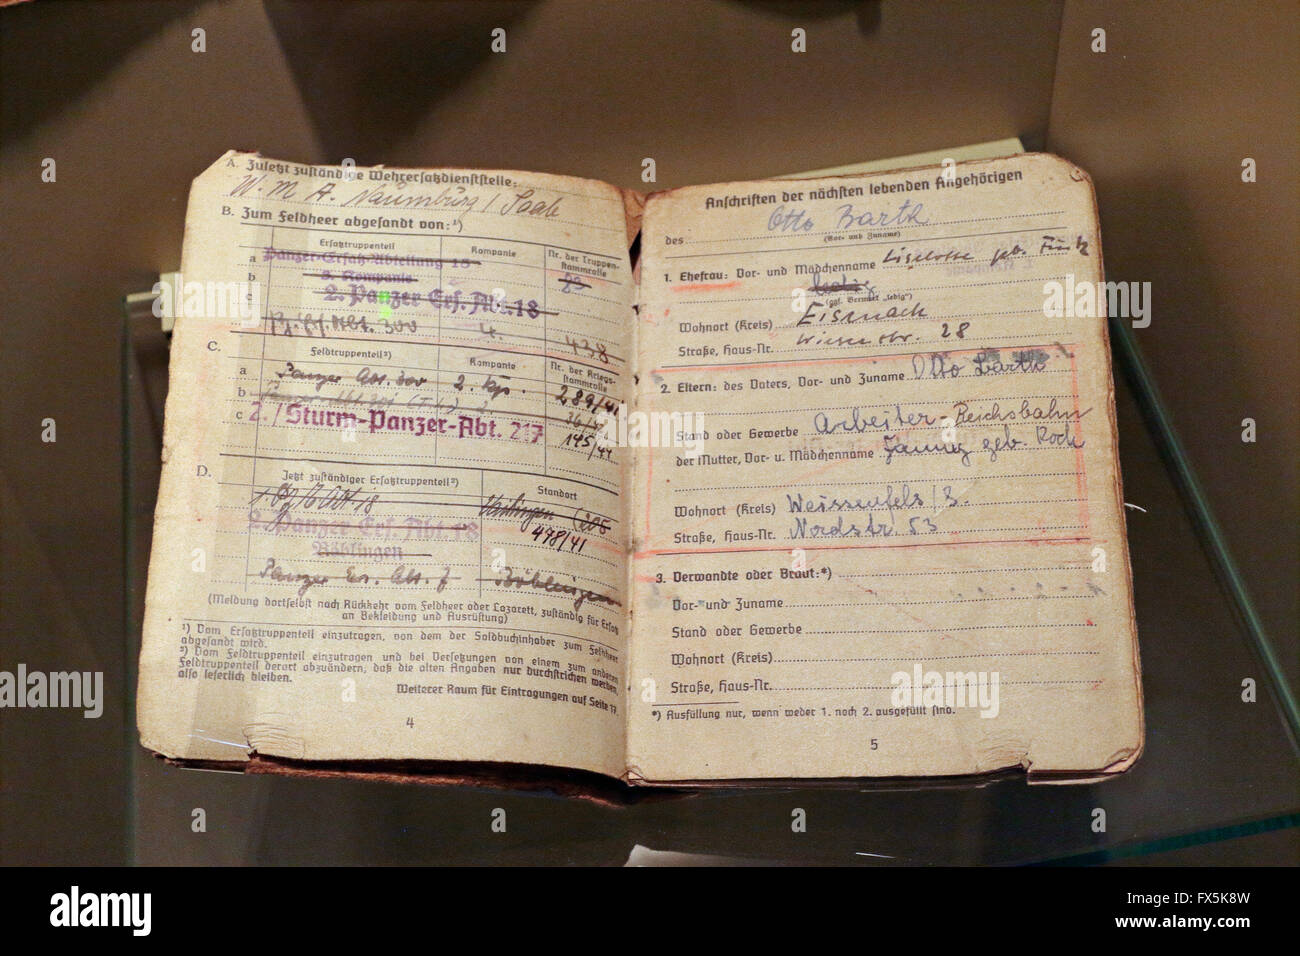 A. Zuletzt zuständige Wehrersatzdienststelle:
W. M. A. Naumburg / Saale
B. Zum Feldheer abgesandt von:¹)
Ersatztruppenteil Kompanie Nr. der Truppen-stammrolle
a Panzer-Ersatz-Abteilung 18
b 3. Kompanie
c 2. Panzer Ers. Abt. 18
300 4. 438
C. Feldtruppenteil²) Kompanie Nr. der Kriegs-stammrolle
a Panzer Abt. 300 2. Kp. 289/41
b Panzer Abt. 301
c 2./Sturm-Panzer-Abt. 217 145/44
D. Jetzt zuständiger Ersatztruppenteil²) Standort
498/41
2. Panzer Ers. Abt. 18
Böblingen
Panzer Ers. Abt. 7 Böblingen
(Meldung dortselbst nach Rückkehr vom Feldheer oder Lazarett, zuständig für Ersatz
an Bekleidung und Ausrüstung)
¹) Vom Ersatztruppenteil einzutragen, von dem der Soldbuchinhaber zum Feldheer
abgesandt wird.
²) Vom Feldtruppenteil einzutragen und bei Versetzungen von einem zum anderen
Feldtruppenteil derart abzuändern, daß die alten Angaben nur durchstrichen werden,
also leserlich bleiben.
Weiterer Raum für Eintragungen auf Seite 17.
4
Anschriften der nächsten lebenden Angehörigen
des Otto Barth
(Vor- und Zuname)
1. Ehefrau: Vor- und Mädchenname Liselotte geb.
ledig
(ggf. Vermerk „ledig")
Wohnort (Kreis) Eisenach
Straße, Haus-Nr. 28
2. Eltern: des Vaters, Vor- und Zuname Otto Barth
Stand oder Gewerbe Arbeiter-Reichsbahn
der Mutter, Vor- u. Mädchenname Fanny geb. Koch
Wohnort (Kreis) Weissenfels/S.
Straße, Haus-Nr. Nordstr. 53
3. Verwandte oder Braut:*)
Vor- und Zuname
Stand oder Gewerbe
Wohnort (Kreis)
Straße, Haus-Nr.
*) Ausfüllung nur, wenn weder 1. noch 2. ausgefüllt sind.
5
alamy
Image ID: FX5K8W
www.alamy.com